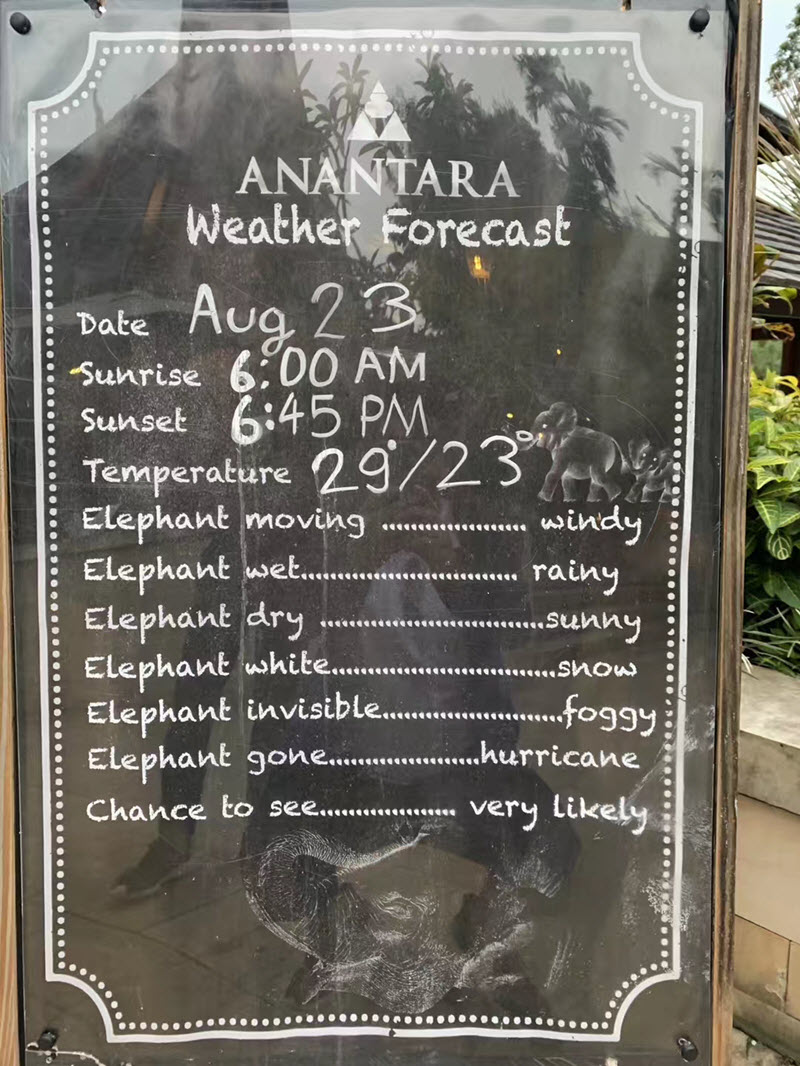 ANANTARA
Weather Forecast
Date Aug 23
Sunrise 6:00 AM
Sunset 6:45 PM
Temperature 29°/23°
Elephant moving .................. windy
Elephant wet........................... rainy
Elephant dry ............................sunny
Elephant white............................snow
Elephant invisible.......................foggy
Elephant gone...................hurricane
Chance to see................. very likely